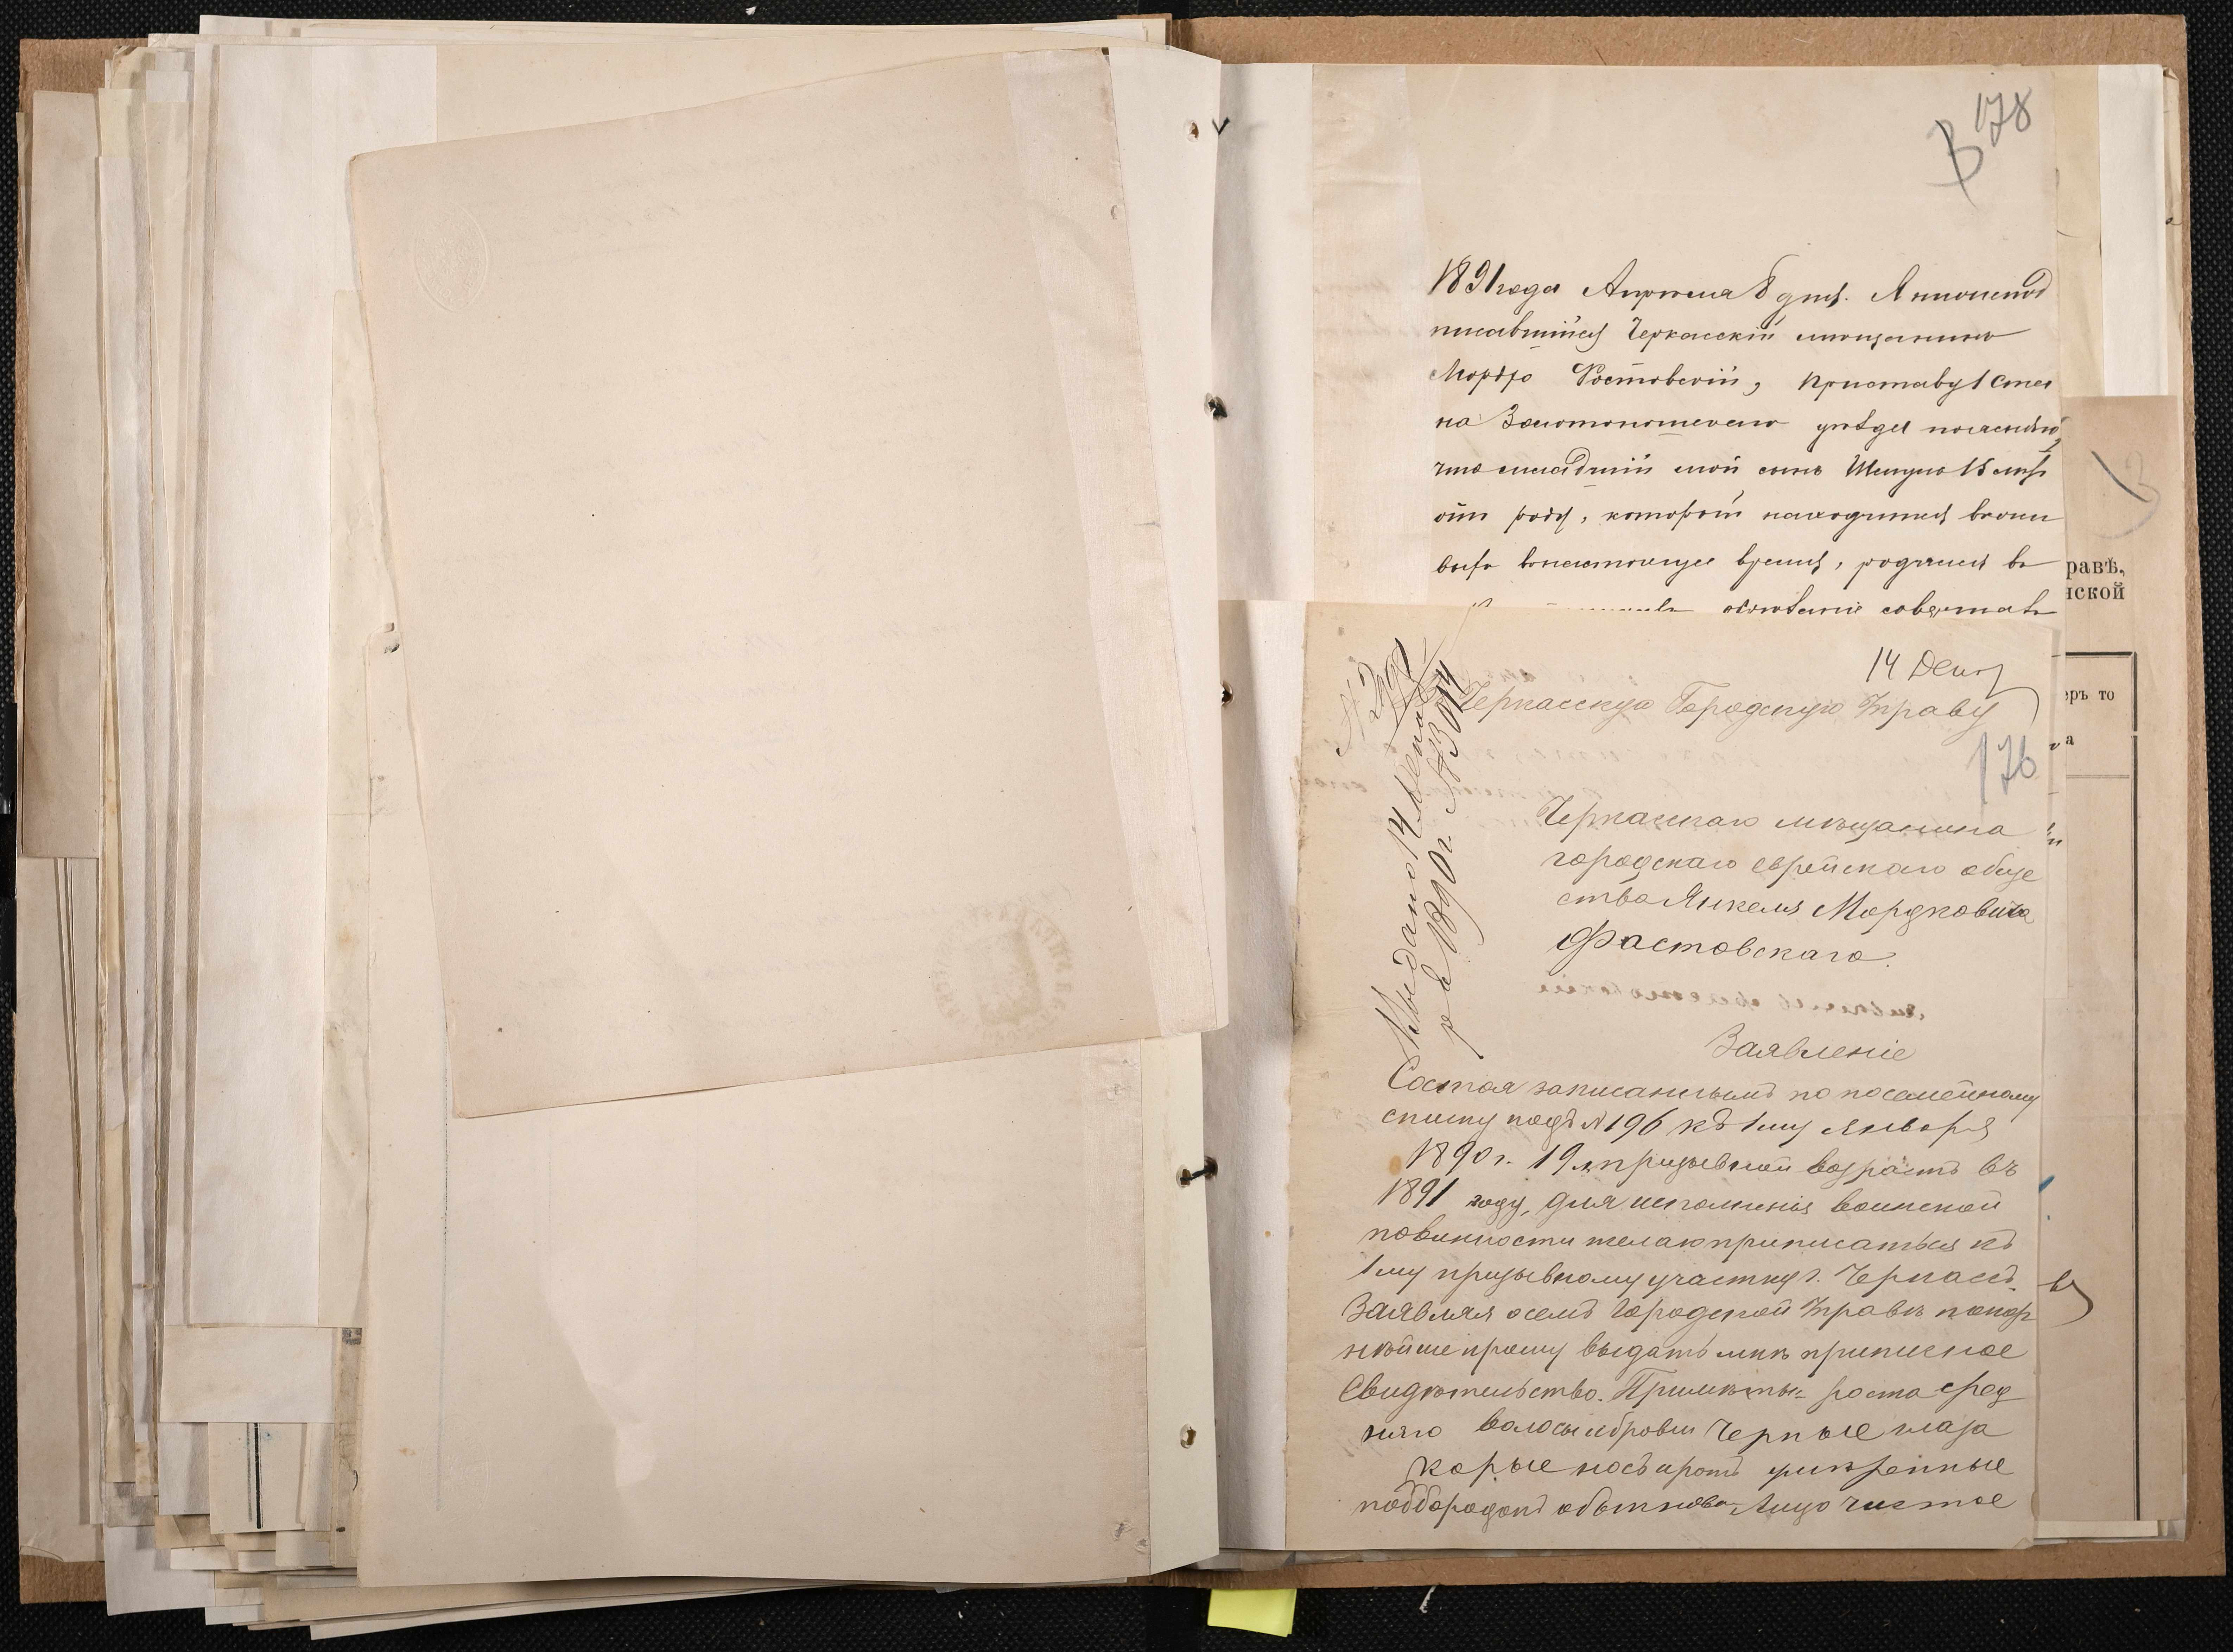 178
1891 года Апреля 8 дня. Я нижепод
писавшійся Черкасскій мещанинъ
Мордко Фостовскій, Приставу 1 Ста
на Золотоношскаго уѣзда
что младшій мой сынъ 15 лѣтъ
отъ роду, который находится
время, родился въ
14 Дек
Черкасскую Городскую Управу
176
Черкасскаго мѣщанина
городскаго еврейскаго обще
ства Янкеля Мордковича
Фастовскаго.
Заявленіе
Состоя записаннымъ по посемейному
списку подъ № 196 къ 1му января
1890 г. 19 л. призывной возрастъ въ
1891 году, для исполненія воинской
повинности желаю приписаться къ
1му призывному участку г. Черкасъ.
Заявляя осемъ Городской Управѣ покор
нѣйше прошу выдать мнѣ приписное
Свидѣтельство. Примѣты: роста сред
няго волосы и брови Черные глаза
карые носъ и ротъ умѣренные
подбородокъ обыкнов. Лицо чистое
Выдано 14 Декаб
ря 1890 г. № 3014
равѣ,
нской
ръ то
а